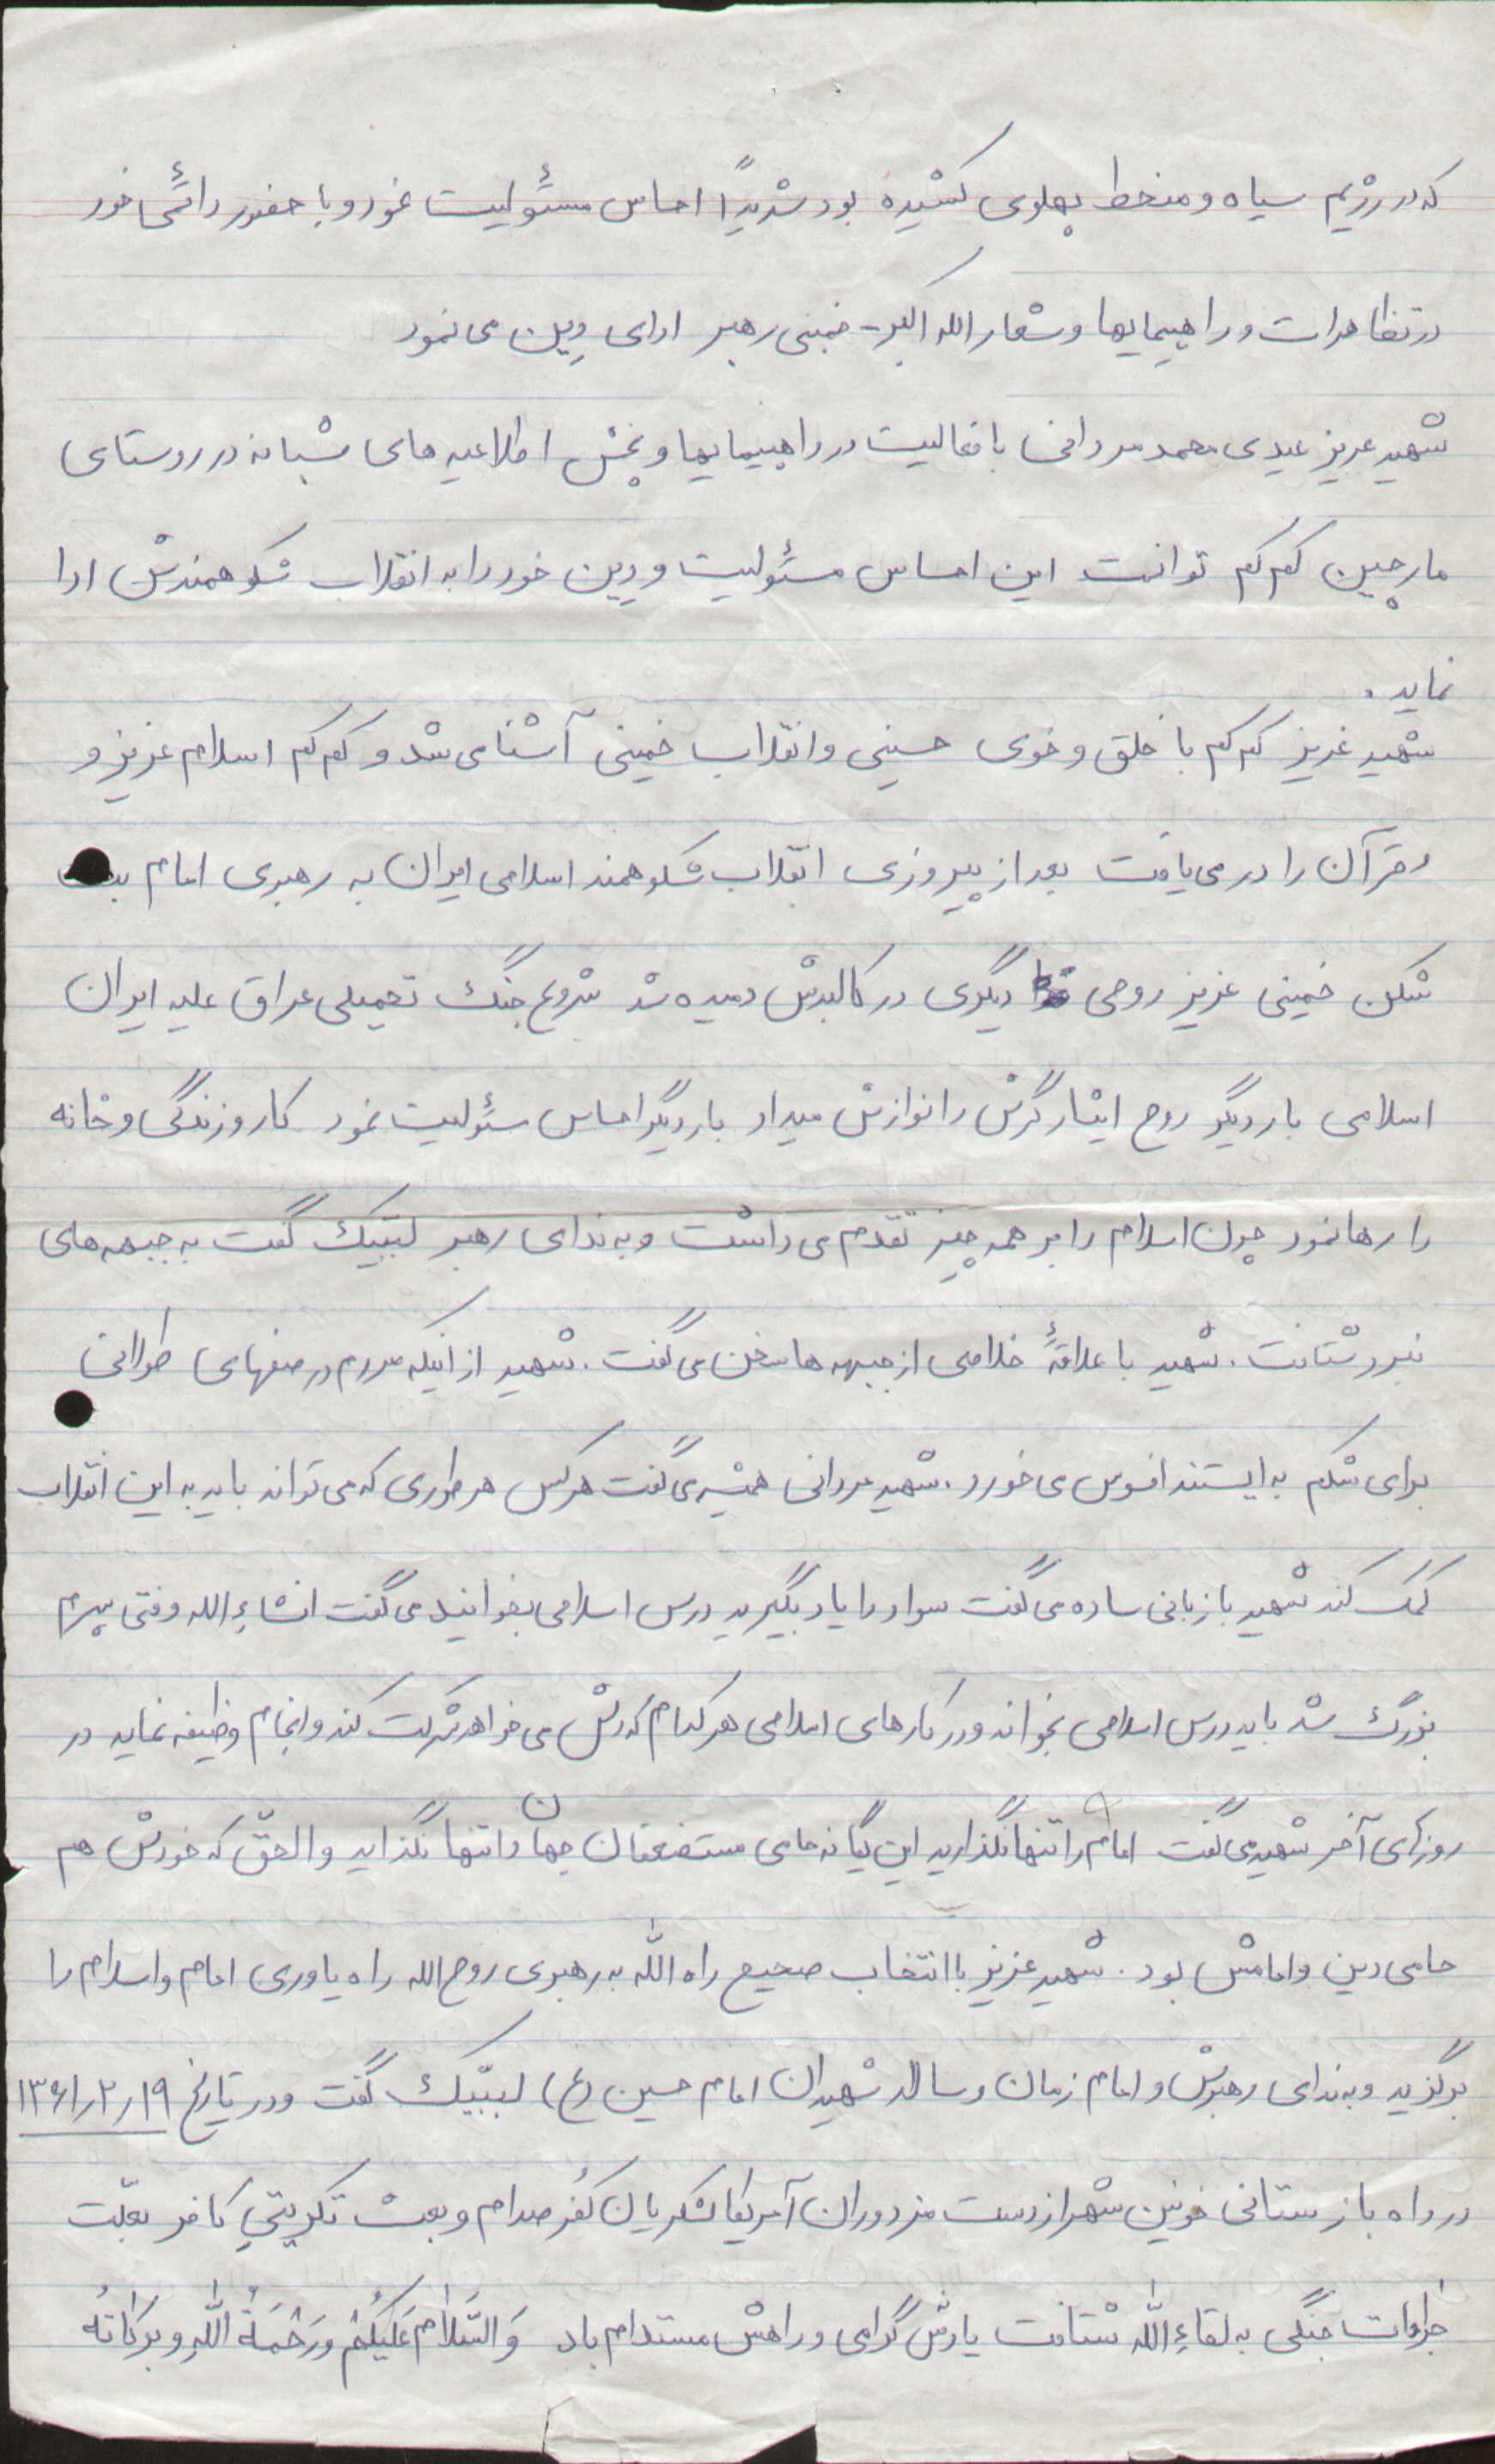 که در رژیم سیاه و منحط پهلوی کشیده بود شدیداً احساس مسئولیت نمود و با حضور دائمی خود
در تظاهرات و راهپیمایها و شعار الله اکبر - خمینی رهبر ادای دین می نمود
شهید عزیز عیدی محمد مردانی با فعالیت در راهپیمایها و پخش اطلاعیه های شبانه در روستای
مارچین کم کم توانست این احساس مسئولیت و دین خود را به انقلاب شکوهمندش ادا
نماید.
شهید عزیز کم کم با خلق و خوی حسینی و انقلاب خمینی آشنا می شد و کم کم اسلام عزیز و
و قرآن را در می یافت بعد از پیروزی انقلاب شکوهمند اسلامی ایران به رهبری امام بت
شکن خمینی عزیز روحی دیگری در کالبدش دمیده شد شروع جنگ تحمیلی عراق علیه ایران
اسلامی بار دیگر روح ایثارگرش را نوازش میداد بار دیگر احساس مسئولیت نمود کار و زندگی و خانه
را رها نمود چون اسلام را بر همه چیز تقدم می داشت و به ندای رهبر لبّیک گفت به جبهه های
نبرد شتافت. شهید با علاقهٔ خاصی از جبهه ها سخن می گفت. شهید از اینکه مردم در صفهای طولانی
برای شکم به ایستند افسوس می خورد. شهید مردانی همیشه می گفت هرکس هر طوری که می تواند باید به این انقلاب
کمک کند شهید با زبانی ساده می گفت سواد را یاد بگیرید درس اسلامی بخوانید می گفت انشاءالله وقتی پسرم
بزرگ شد باید درس اسلامی بخواند و در کارهای اسلامی هر کدام که دلش می خواهد شرکت کند و انجام وظیفه نماید در
روزهای آخر شهید می گفت امام را تنها نگذارید این یگانه حامی مستضعفان جهان را تنها نگذارید و الحقّ که خودش هم
حامی دین و امامش بود. شهید عزیز با انتخاب صحیح راه اللّٰه به رهبری روح الله راه یاوری امام و اسلام را
برگزید و به ندای رهبرش و امام زمان و سالار شهیدان امام حسین (ع) لبّیک گفت و در تاریخ ۱۳۶۱/۲/۱۹
در راه بازستانی خونین شهر از دست مزدوران آمریکا لشکریان کفر صدام و بعث تکریتی کافر بعلّت
جراحات جنگی به لقاءِ اللّٰه شتافت یادش گرامی و راهش مستدام باد وَ السَّلامُ عَلَیکُمْ وَرَحْمَةُ اللّٰهِ وَ بَرَکاتُهُ